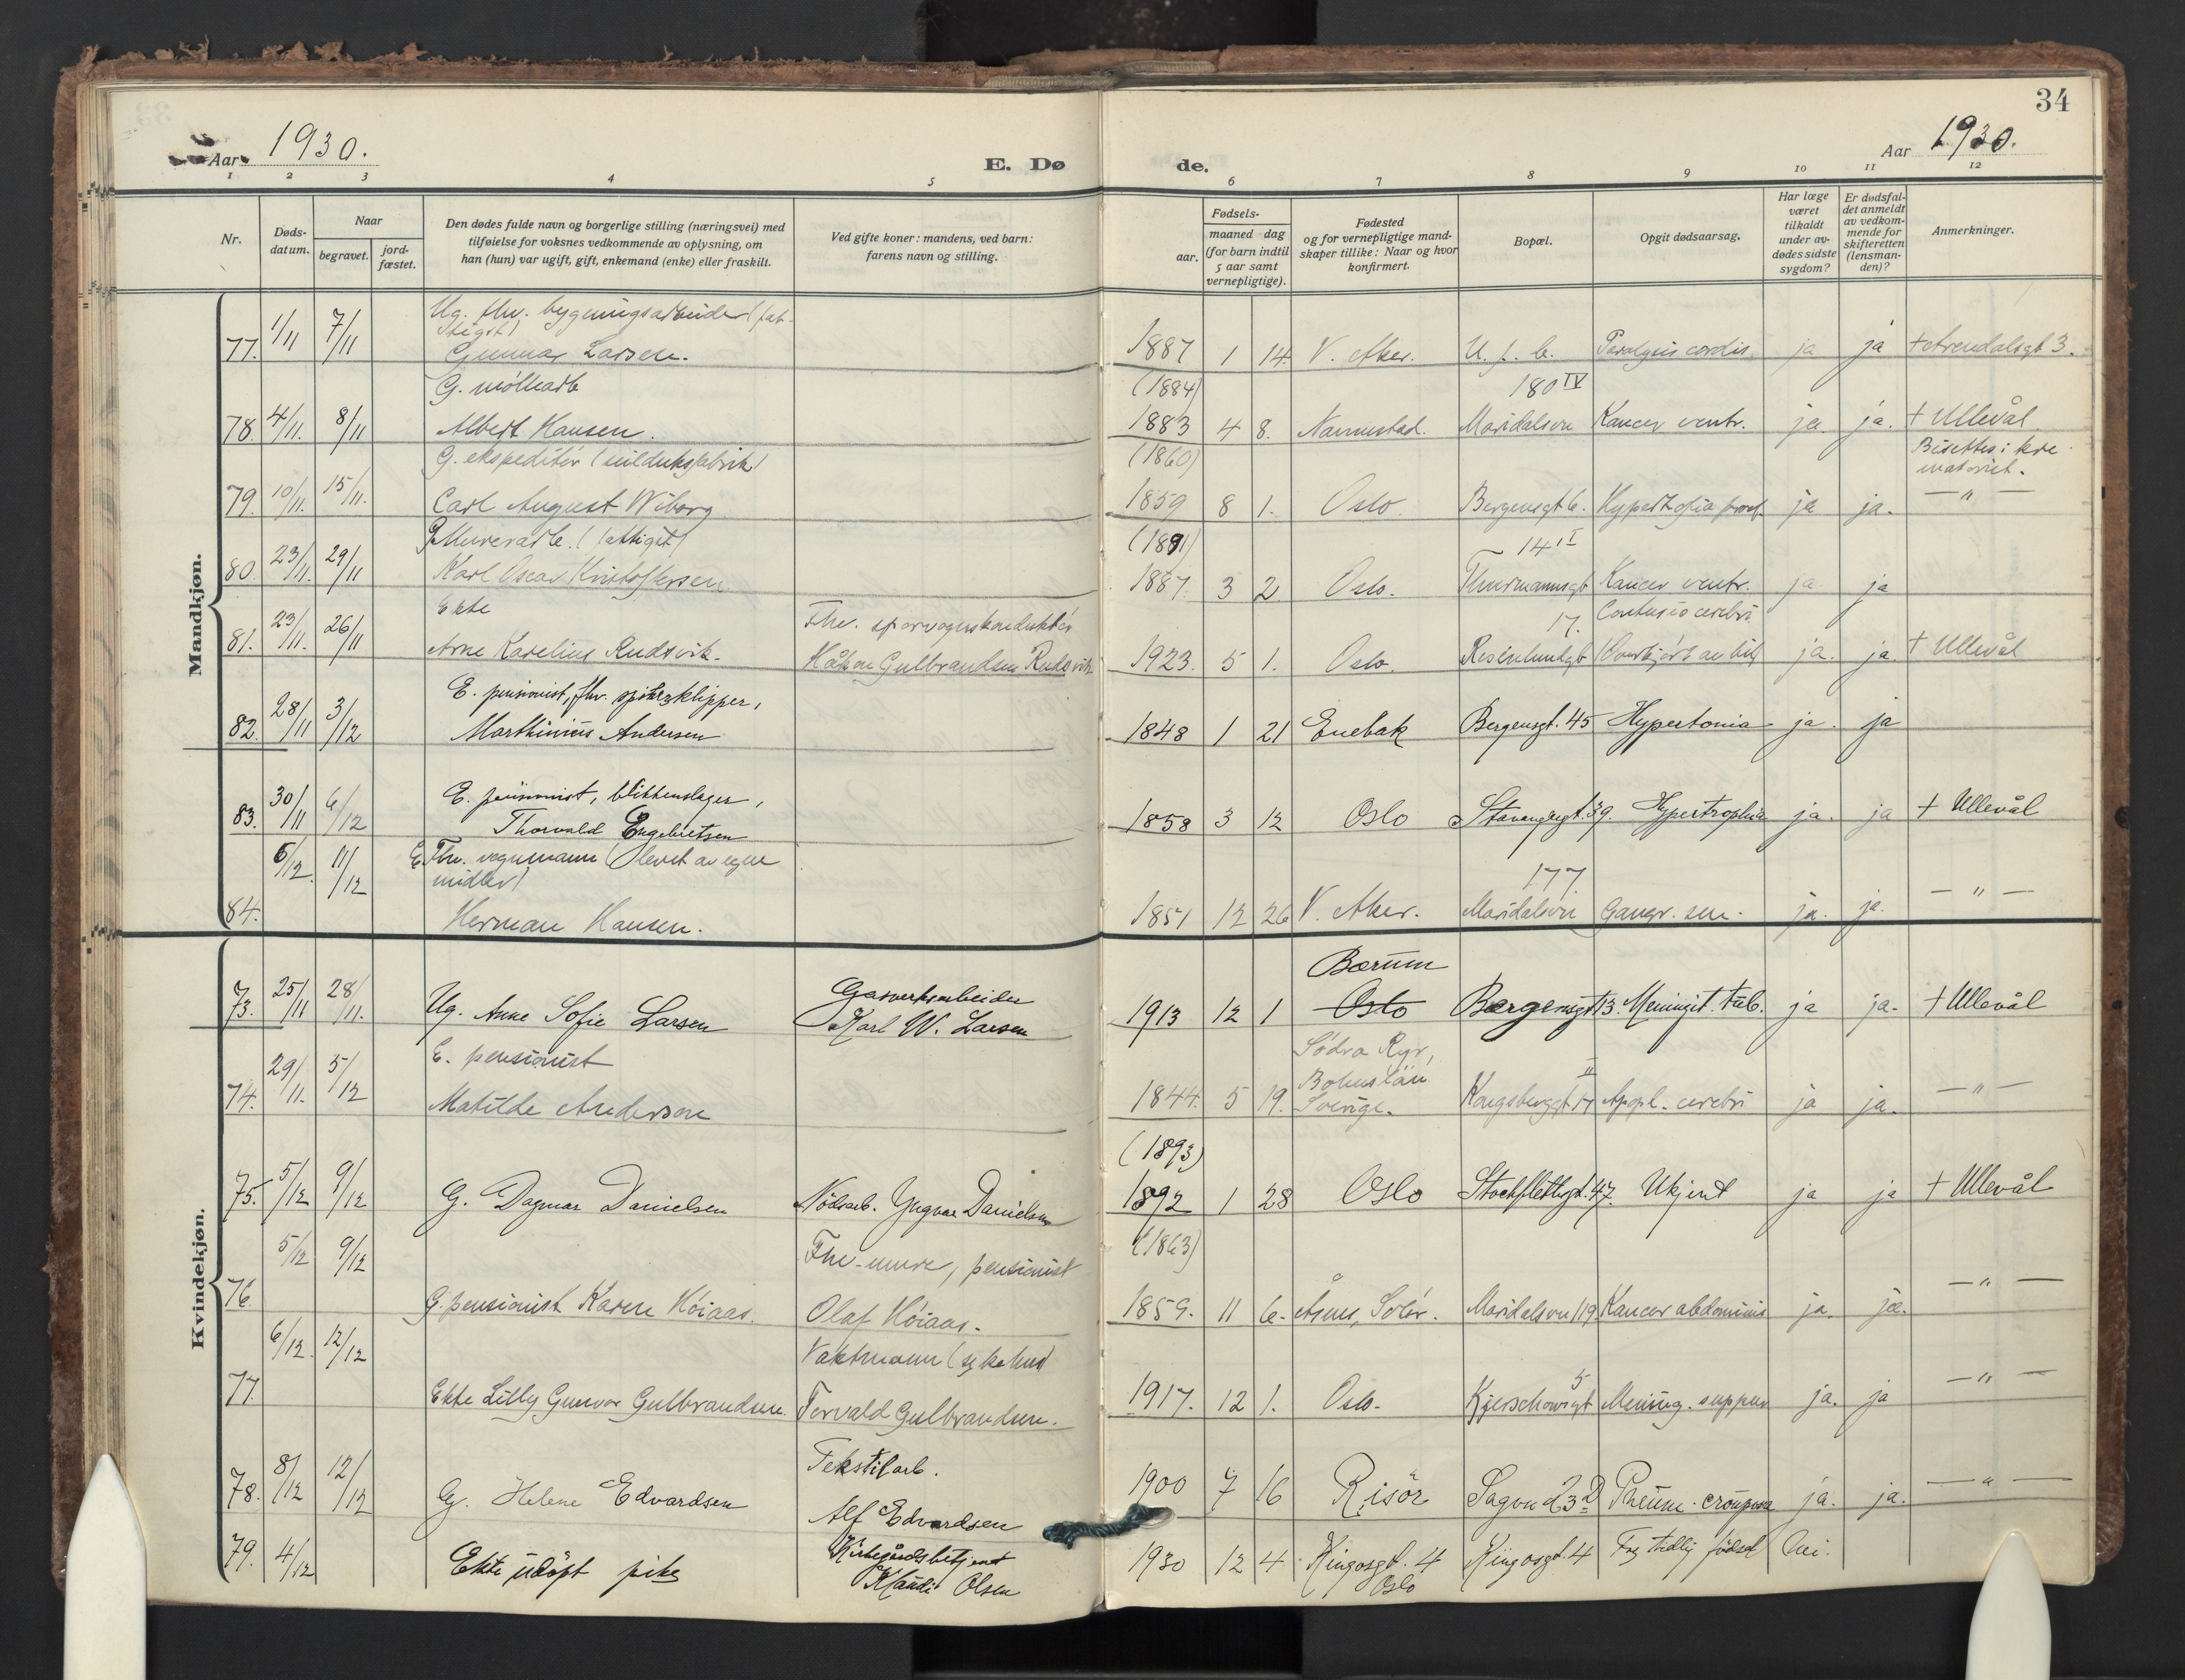 34
Aar 1930.
E. Dø de.
Aar 1930.
1 2 3 4 5 6 7 8 9 10 11 12
Nr.
Døds-
datum.
Naar
begravet.
jord-
fæstet.
Den dødes fulde navn og borgerlige stilling (næringsvei) med
tilføielse for voksnes vedkommende av oplysning, om
han (hun) var ugift, gift, enkemand (enke) eller fraskilt.
Ved gifte koner: mandens, ved barn:
farens navn og stilling.
Fødsels-
aar.
maaned dag
(for barn indtil
5 aar samt
vernepligtige).
Fødested
og for vernepligtige mand-
skaper tillike: Naar og hvor
konfirmert.
Bopæl.
Opgit dødsaarsag.
Har læge
været
tilkaldt
under av-
dødes sidste
sygdom?
Er dødsfal-
det anmeldt
av vedkom-
mende for
skifteretten
(lensman-
den)?
Anmerkninger.
Mandkjøn.
Ug. fhv. bygningsarbeider (fat-
tigst)
77. 1/11 7/11 Gunnar Larsen. 1887 1 14. V. Aker. U. f. b. Paralysis cordis ja ja + Arendalsgt 3.
G. møllearb (1884) 180 IV
78. 4/11. 8/11 Albert Hansen. 1883 4 8. Nannestad. Maridalsvn Kancer ventr. ja ja. + Ullevål.
G. ekspeditör (seildukfabrik) (1860) Bisettes i kre-
matoriet.
79. 10/11. 15/11. Carl August Wiborg 1859 8 1. Oslo. Bergensgt 6. Hypertrofia prost. ja ja. — " —
G. Murerarb. (fattigst) (1891) 14 I
80. 23/11. 29/11 Karl Oscar Kristoffersen. 1887. 3 2 Oslo. Thurmannsgt Kancer ventr. ja ja
Ekte Fhv. sporvognskonduktör 17. Contusio cerebri
81. 23/11. 26/11 Arne Karelius Rudsvik. Håkon Gulbrandsen Rudsvik 1923. 5 1. Oslo. Rosenlundgt (Overkjört av bil) ja. ja. + Ullevål
E. pensionist, fhv. spikerklipper,
82. 28/11 3/12 Marthinius Andersen 1848 1 21 Enebak Bergensgt. 45 Hypertonia ja. ja
E. pensionist, blikkenslager,
83. 30/11 6/12 Thorvald Engebretsen 1858 3 12 Oslo Stavangergt. 39. Hypertrophia ja. ja + Ullevål
E. Fhv. vognmann (levet av egne
midler) 177.
84. 5/12. 11/12 Herman Hansen. 1851 12 26 V. Aker. Maridalsvn Gangr. sen. ja. ja. — " —
Kvindekjøn.
Gasverksarbeider Bærum
73. 25/11 28/11. Ug. Anne Sofie Larsen Karl W. Larsen 1913 12 1 Oslo Bergensgt 13. Meningit. tub. ja ja. + Ullevål
E. pensionist Södra Ryr,
Bohuslän II
74. 29/11. 5/12 Matilde Anderson 1844. 5 19. Sverige. Kongsberggt 17 Apopl. cerebri ja ja. — " —
(1893)
75. 5/12 9/12 G. Dagmar Danielsen Nödsarb. Yngvar Danielsen 1892 1 28 Oslo Stockflethsgt. 47. Ukjent ja ja + Ullevål
5/12 9/12 Fhv. murer, pensionist (1863)
76. G. pensionist Karen Höiaas. Olaf Höiaas. 1859. 11 6. Åsnes, Solör. Maridalsvn 119 Kancer abdominis ja. ja. — " —
6/12. 12/12 Vaktmann (sykehus) 5
77. Ekte Lilly Gunvor Gulbrandsen. Torvald Gulbrandsen. 1917. 12 1. Oslo. Kjerschowsgt Mening. suppur ja. ja — " —
Tekstilarb.
78. 8/12 12/12 G. Helene Edvardsen Alf Edvardsen 1900 7 16 Risör Sagvn 23 D Pneum. crouposa ja. ja. — " —
Kirkegårdsbetjent
79. 4/12 Ekte udöpt pike Klaudi Olsen 1930 12 4 Kingosgt. 4 Kingosgt. 4 For tidlig födsel Nei.
Oslo